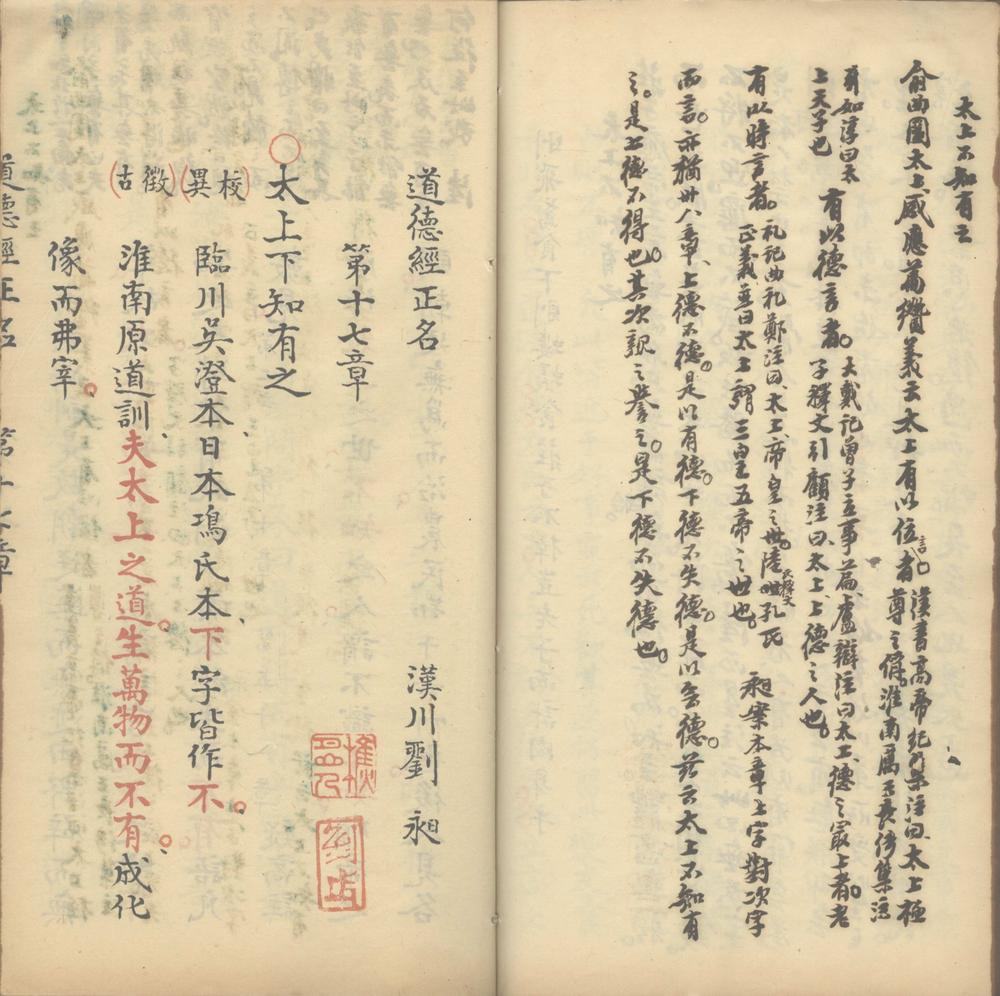 太上不知有之
俞曲園太上感應篇纘義云太上有以位言者。漢書高帝紀注曰太上極
尊之稱。淮南厲王長傳集注
有如淳曰太
上天子也
有以德言者。大戴記曾子立事篇盧辯注曰太上德之最上者老
子釋文引顧注曰太上上德之人也。
有以時言者。礼記曲礼鄭注曰太上帝皇之世。陸氏釋文孔氏
正義並曰太上謂三皇五帝之世也。
昶案本章上字對次字
而言。亦猶卅八章上德不德。是以有德。下德不失德。是以無德。茲云太上不知有
之。是上德不得也。其次親之譽之。是下德不失德也。
道德經正名 漢川劉昶
第十七章
太上下知有之
(校異)(徵古)
臨川吳澄本、日本塢氏本、下字皆作不。
淮南原道訓、夫太上之道。生萬物而不有、成化
像而弗宰。
道德經正名 第十七章